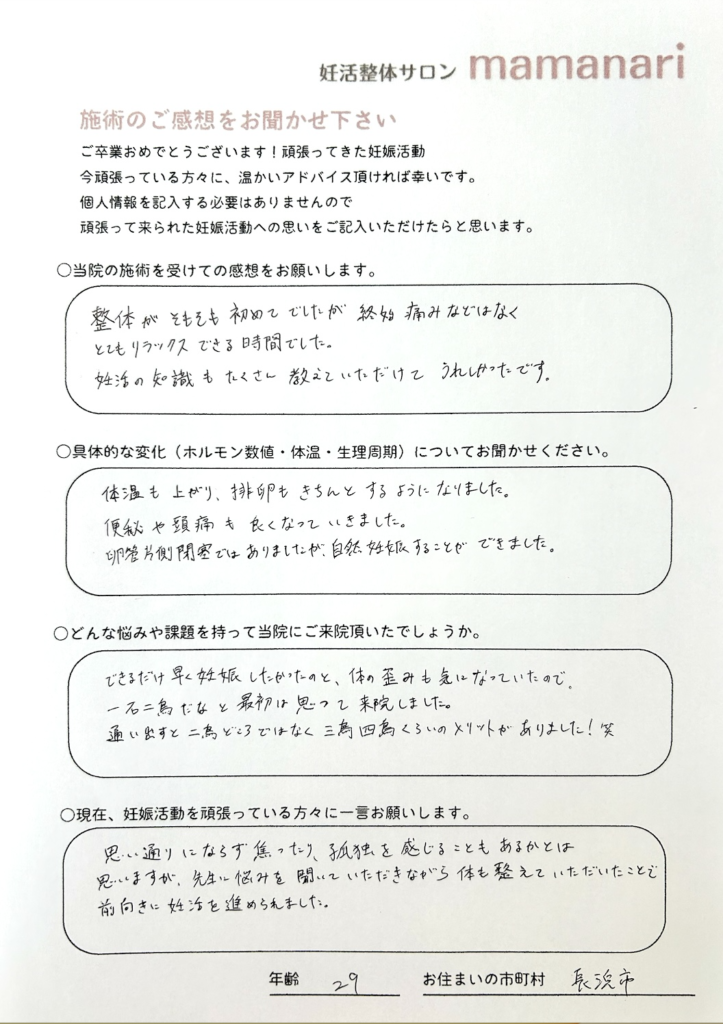 妊活整体サロン mamanari
施術のご感想をお聞かせ下さい
ご卒業おめでとうございます！頑張ってきた妊娠活動
今頑張っている方々に、温かいアドバイス頂ければ幸いです。
個人情報を記入する必要はありませんので
頑張って来られた妊娠活動への思いをご記入いただけたらと思います。
○当院の施術を受けての感想をお願いします。
整体がそもそも初めてでしたが終始痛みなどはなく
とてもリラックスできる時間でした。
妊活の知識もたくさん教えていただけてうれしかったです。
○具体的な変化（ホルモン数値・体温・生理周期）についてお聞かせください。
体温も上がり、排卵もきちんとするようになりました。
便秘や頭痛も良くなっていきました。
卵管片側閉塞ではありましたが、自然妊娠することができました。
○どんな悩みや課題を持って当院にご来院頂いたでしょうか。
できるだけ早く妊娠したかったのと、体の歪みも気になっていたので、
一石二鳥だなと最初は思って来院しました。
通い出すと二鳥どころではなく三鳥四鳥くらいのメリットがありました！笑
○現在、妊娠活動を頑張っている方々に一言お願いします。
思い通りにならず焦ったり、孤独を感じることもあるかとは
思いますが、先生に悩みを聞いていただきながら体も整えていただいたことで
前向きに妊活を進められました。
年齢 29 お住まいの市町村 長浜市